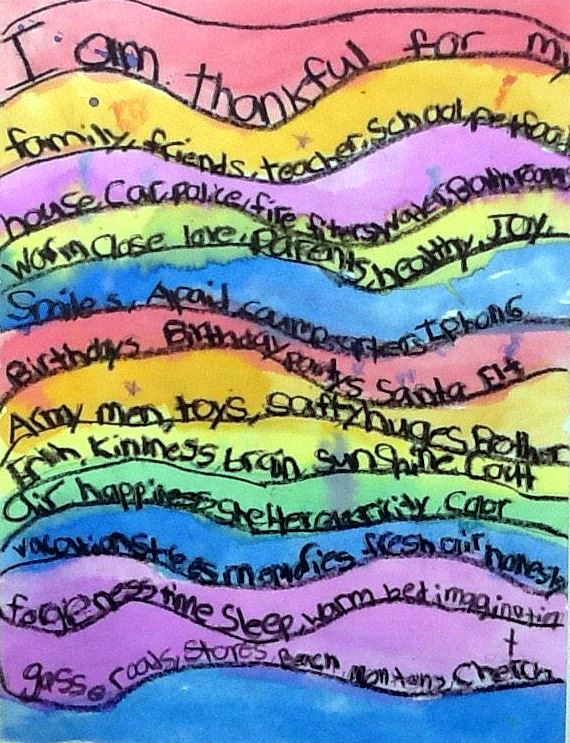 I am thankful for my
family, friends, teacher, school, pet food
house, Car, police, fire fiters, water, Bathrooms
warm Close love, parents, healthy, Joy,
Smiles, Apaid, Iphon6
Birthdays Birthday partys Santa Elf
Army men, toys, saftty huges Brother
kinness, brain, sunshine, Cort
air, happiness shelter Color
vacations trees memories fresh air honesty
forgieness time Sleep, warm bed, imaginatin
gasso roads, Stores Beach Montens, Cherch